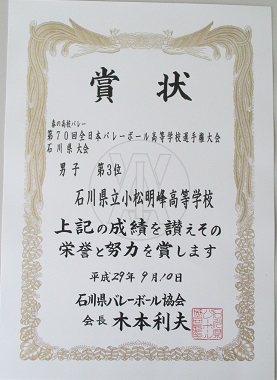 賞状
春の高校バレー
第70回全日本バレーボール高等学校選手権大会
石川県大会
男子 第3位
石川県立小松明峰高等学校
上記の成績を讃えその
栄誉と努力を賞します
平成29年9月10日
石川県バレーボール協会
会長 木本利夫